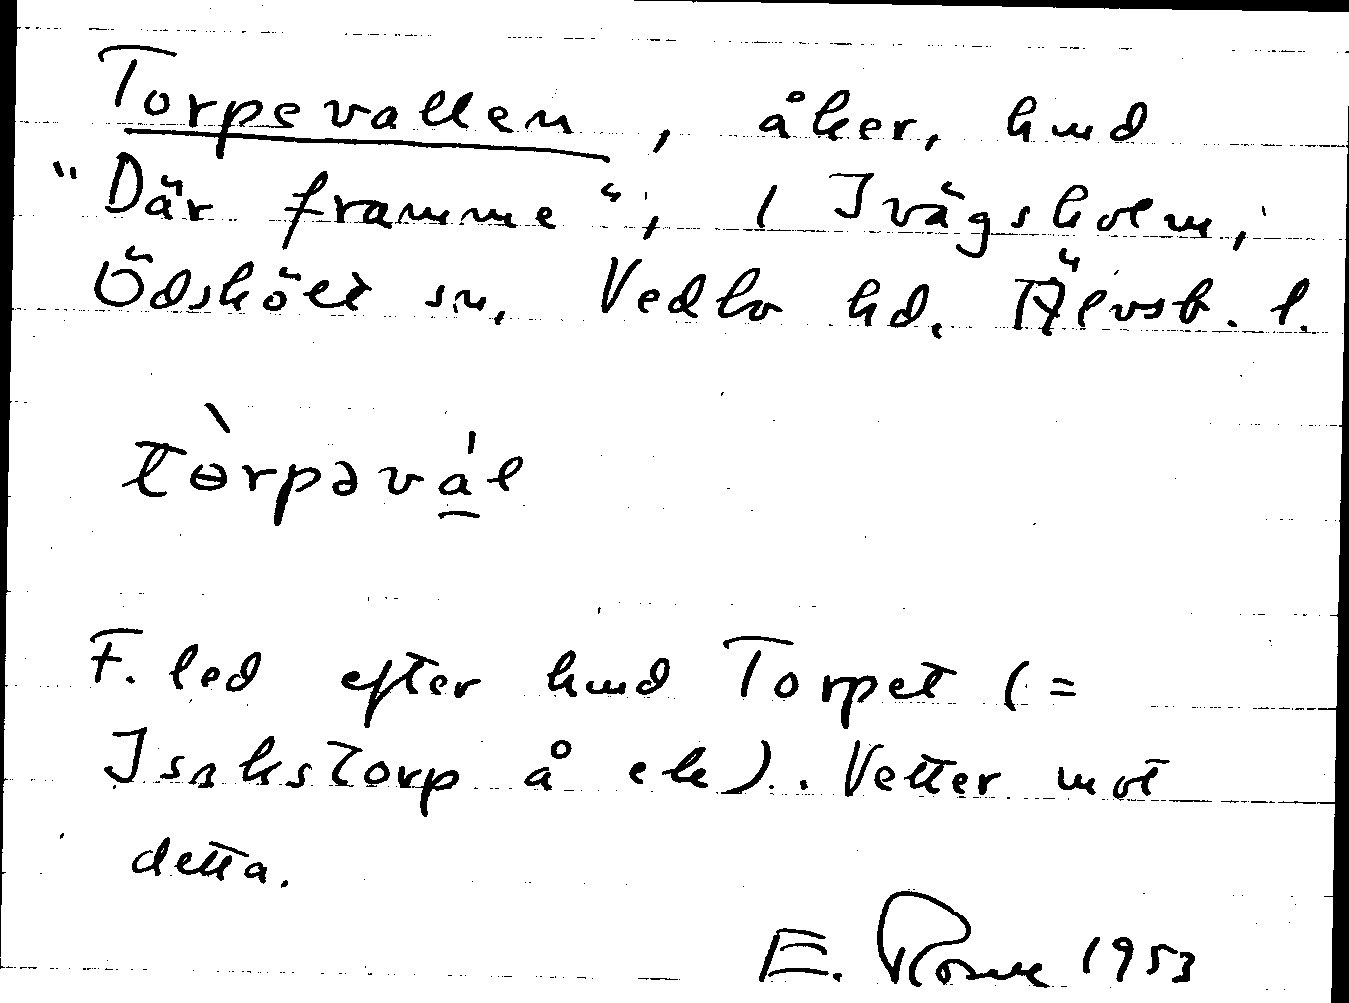 Torpevallen, åker, hmd
"Där framme", 1 Ivägsholm,
Ödskölt sn, Vedbo hd, Älvsb. l.
tòrpəvál
F. led efter hmd Torpet (=
Isakstorp å ek). Vetter mot
detta.
E. 1953